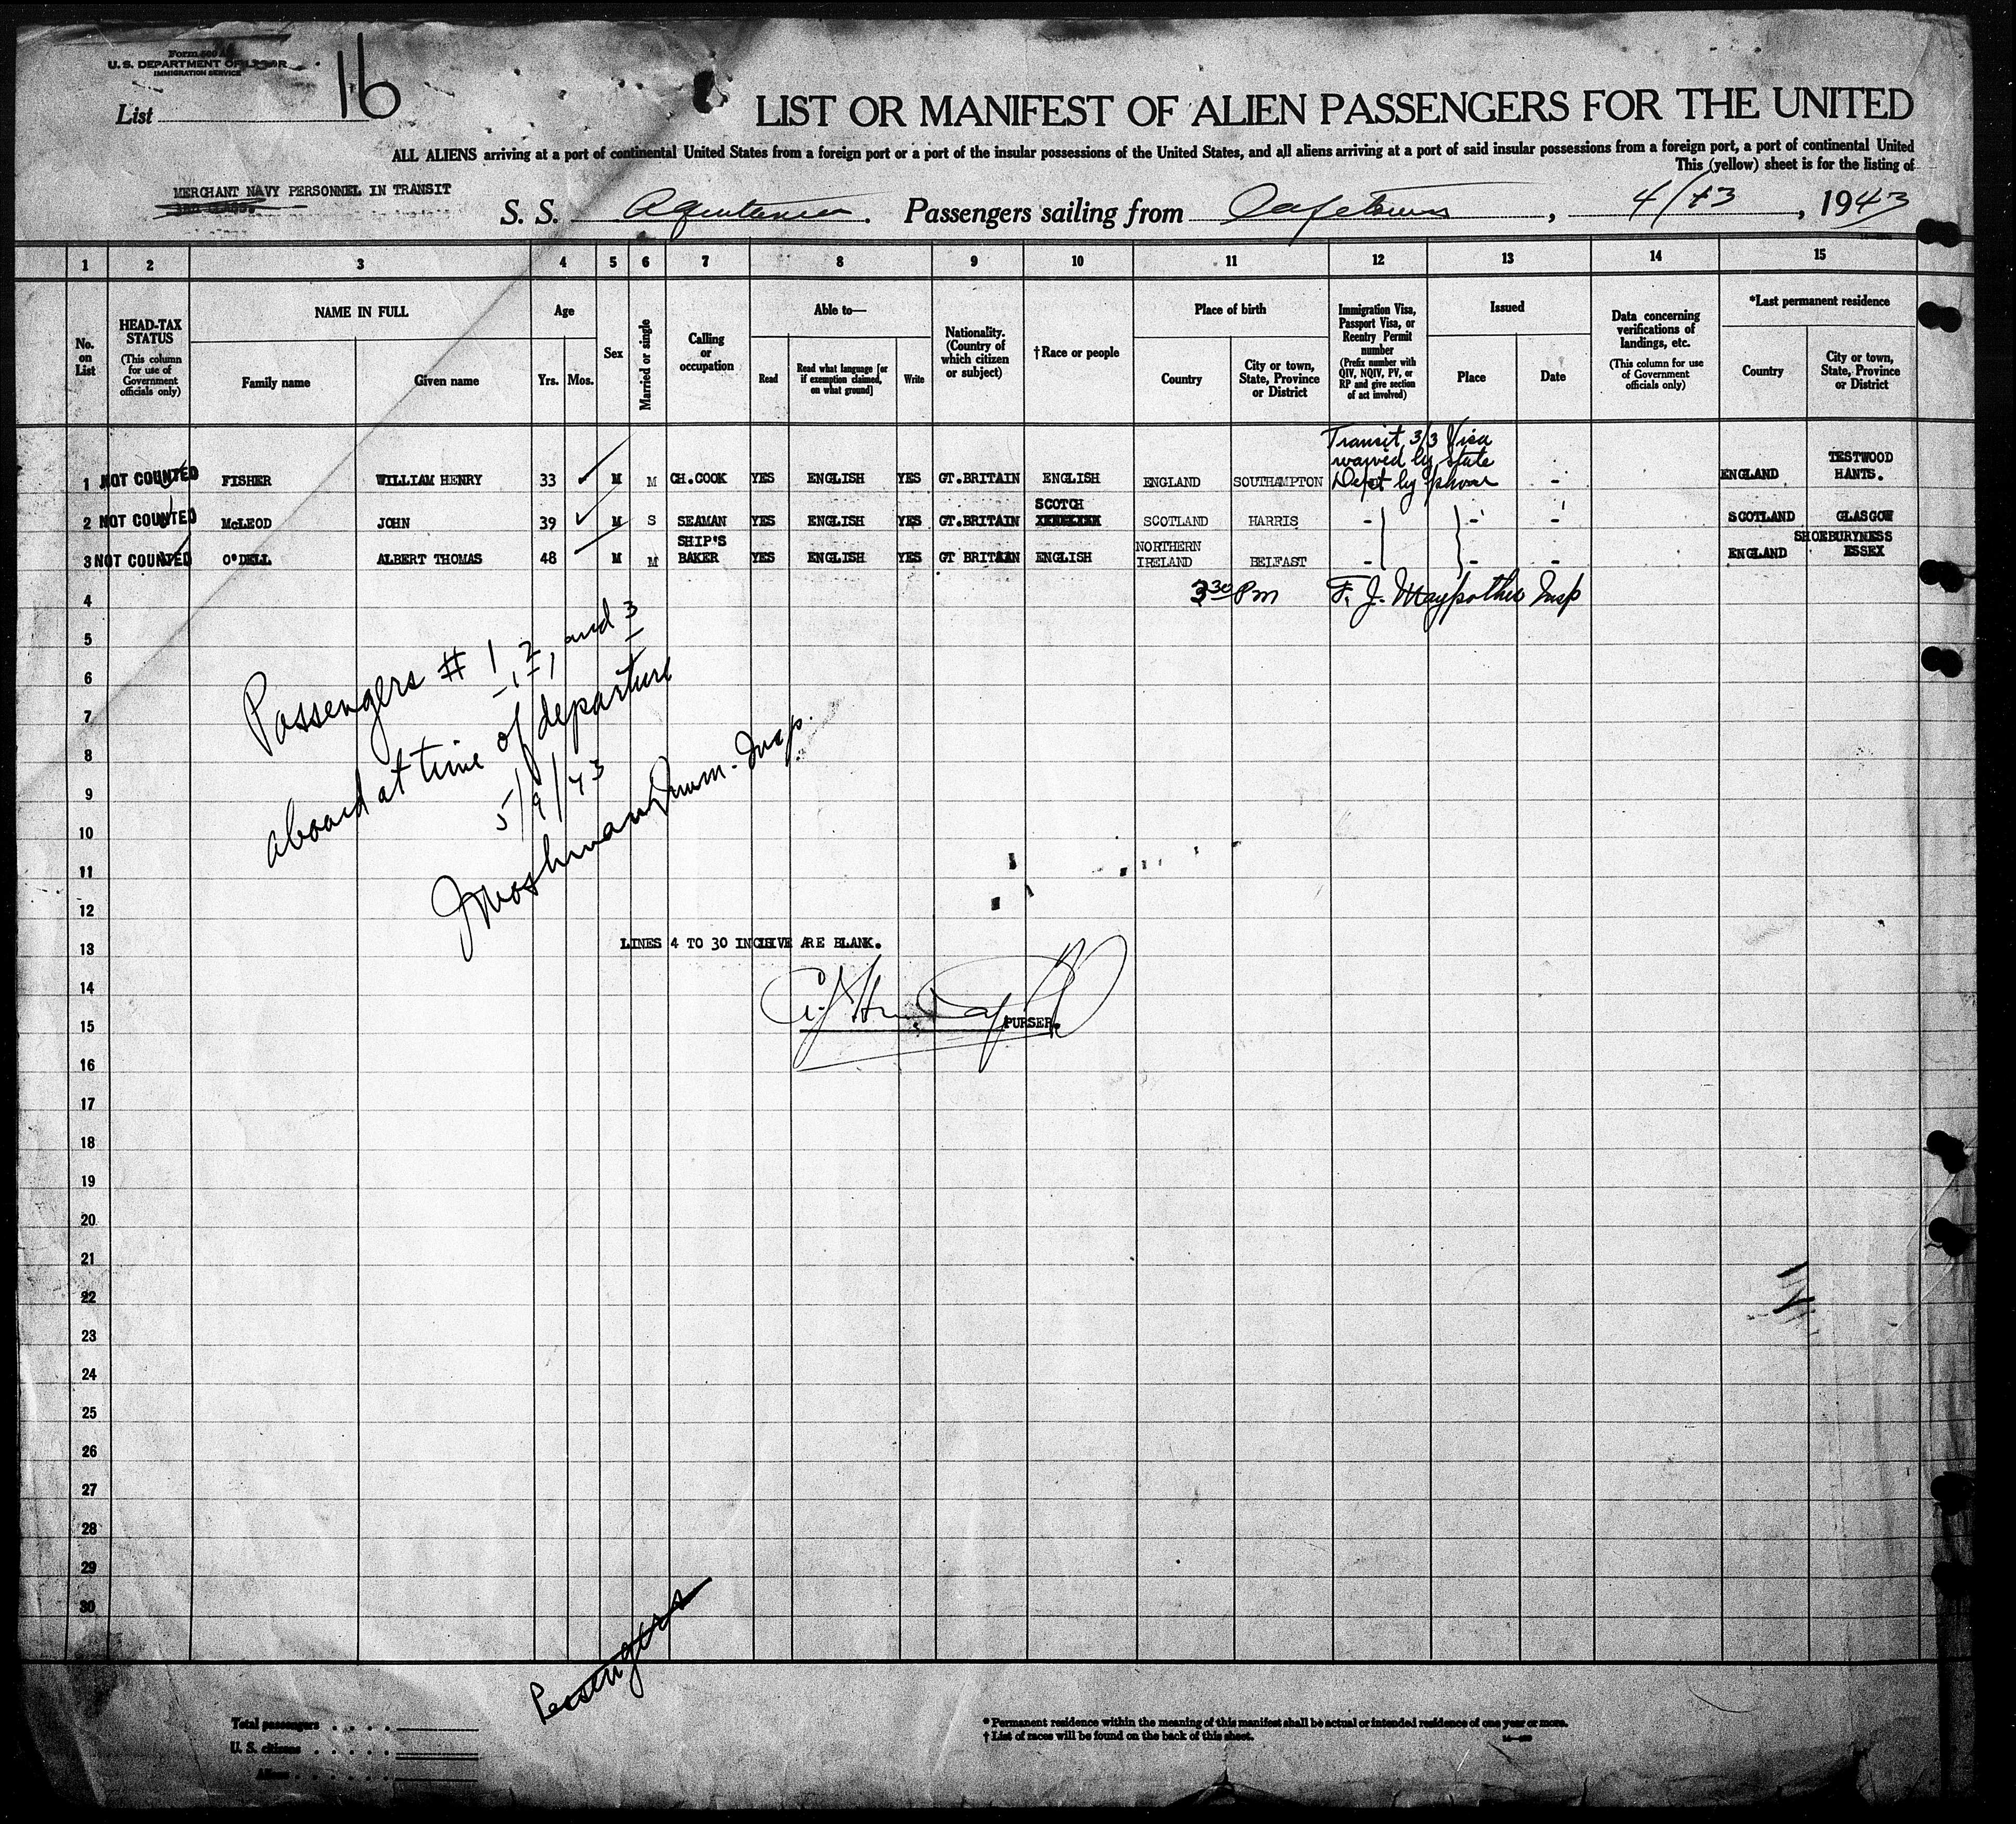 Form 500 A
U. S. DEPARTMENT OF LABOR
IMMIGRATION SERVICE
List 16
LIST OR MANIFEST OF ALIEN PASSENGERS FOR THE UNITED
ALL ALIENS arriving at a port of continental United States from a foreign port or a port of the insular possessions of the United States, and all aliens arriving at a port of said insular possessions from a foreign port, a port of continental United
This (yellow) sheet is for the listing of
MERCHANT NAVY PERSONNEL IN TRANSIT
S. S. Aquitania. Passengers sailing from Capetown, 4/ 43, 1943
1 2 3 4 5 6 7 8 9 10 11 12 13 14 15
No. on List
HEAD-TAX STATUS (This column for use of Government officials only)
NAME IN FULL Family name Given name
Age Yrs. Mos.
Sex
Married or single
Calling or occupation
Able to— Read Read what language [or if exemption claimed, on what ground] Write
Nationality. (Country of which citizen or subject)
†Race or people
Place of birth Country City or town, State, Province or District
Immigration Visa, Passport Visa, or Reentry Permit number (Prefix number with QIV, NQIV, PV, or RP and give section of act involved)
Issued Place Date
Data concerning verifications of landings, etc. (This column for use of Government officials only)
*Last permanent residence Country City or town, State, Province or District
Transit 3/3 Visa
waived by State
Dept by phone
1 NOT COUNTED FISHER WILLIAM HENRY 33 M M CH.COOK YES ENGLISH YES GT.BRITAIN ENGLISH ENGLAND SOUTHAMPTON - ENGLAND TESTWOOD HANTS.
2 NOT COUNTED McLEOD JOHN 39 M S SEAMAN YES ENGLISH YES GT.BRITAIN SCOTCH SCOTLAND HARRIS - - - SCOTLAND GLASGOW
3 NOT COUNTED O'DELL ALBERT THOMAS 48 M M SHIP'S BAKER YES ENGLISH YES GT BRITAIN ENGLISH NORTHERN IRELAND BELFAST - - - ENGLAND SHOEBURYNESS ESSEX
3 30 Pm F. J. Maypother Insp
4
5
6
7
8
9
10
11
12
13
14
15
16
17
18
19
20
21
22
23
24
25
26
27
28
29
30
Passengers # 1, 2, and 3
aboard at time of departure
5/9/43
Imm. Insp.
LINES 4 TO 30 INCLSIVE ARE BLANK.
PURSER.
Passengers
Total passengers
U. S. citizens
Aliens
* Permanent residence within the meaning of this manifest shall be actual or intended residence of one year or more.
† List of races will be found on the back of this sheet.